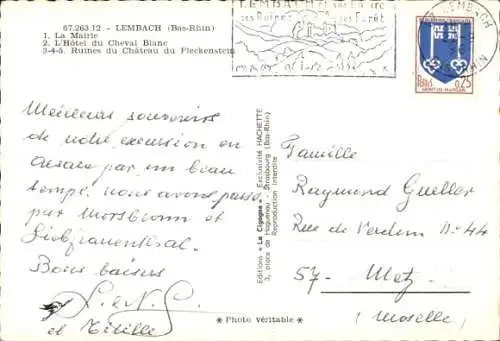 67.263.12 - LEMBACH (Bas-Rhin)
1. La Mairie
2. L'Hôtel du Cheval Blanc
3-4-5. Ruines du Château du Fleckenstein
LEMBACH
ses Ruines ses Forêts
LEMBACH
RHIN
0,25
MONT-DE-MARSAN
Meilleurs souvenirs
de notre excursion en
Alsace par un beau
temps. Nous avons passé
par Morsbronn et
Liebfrauenthal.
Bons baisers
et Titille
Editions « La Cigogne » - Exclusivité HACHETTE
3, place de Haguenau - Strasbourg (Bas-Rhin)
Reproduction interdite
* Photo véritable *
Famille
Raymond Gueller
Rue de Verdun N° 44
57 - Metz
(Moselle)